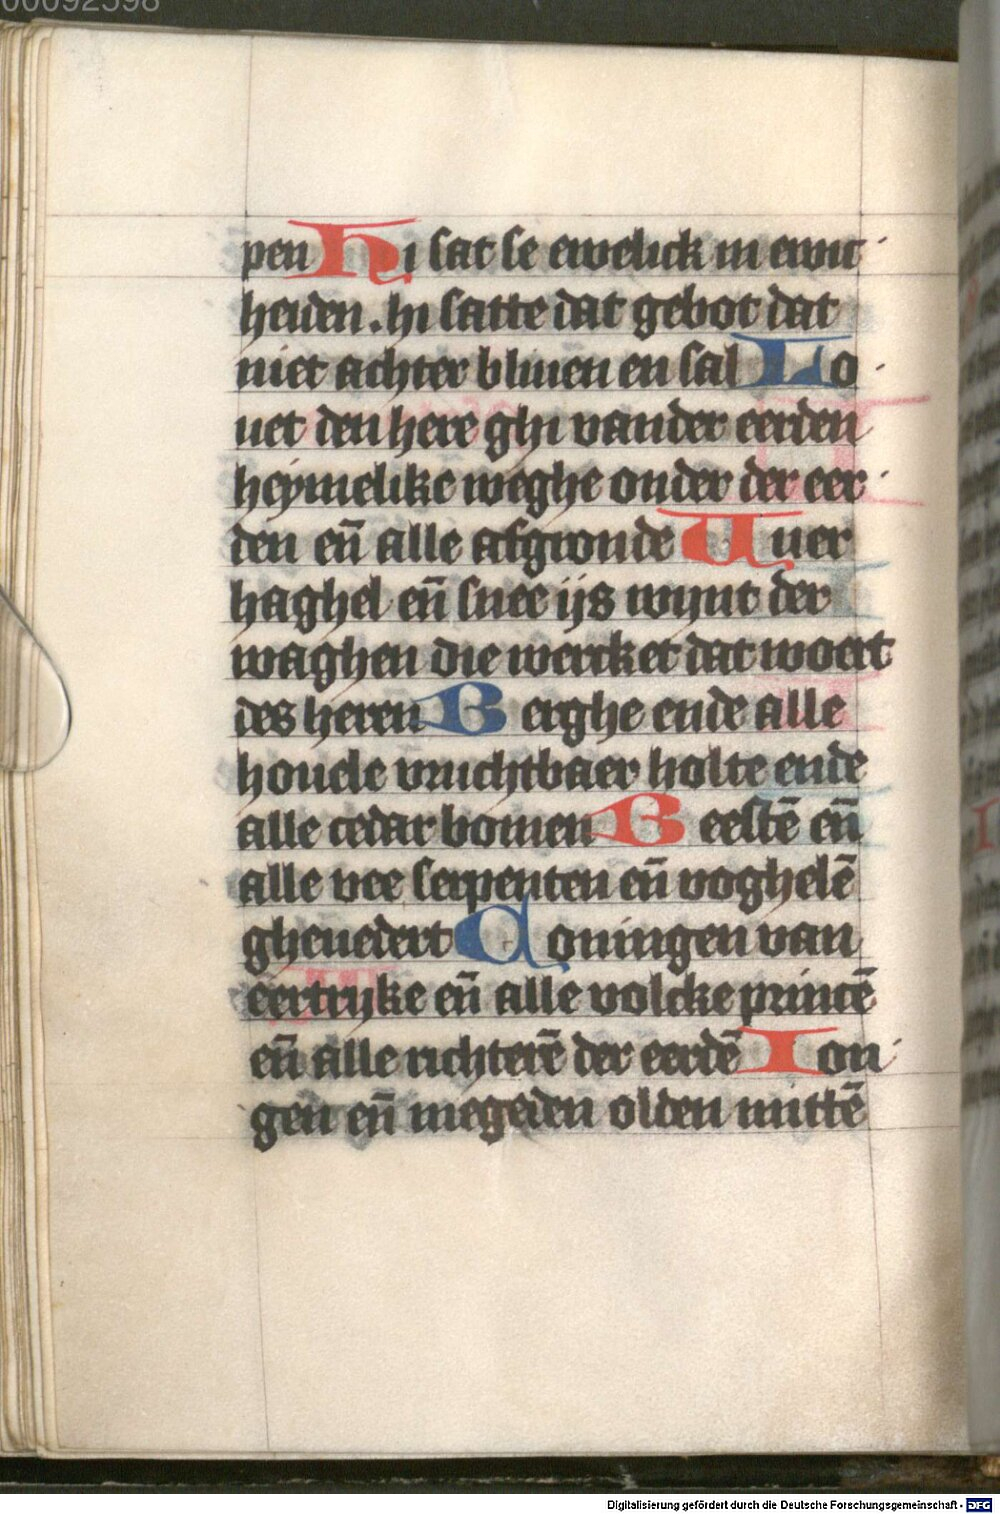 00092598
pen Hi sat se ewelick in ewic
heiden . hi satte dat gebot dat
niet achter bliuen en sal Lo
uet den here ghi vander eerden
heymelike weghe onder der eer
den en̄ alle afgronde Vuer
haghel en̄ snee ijs wijnt der
waghen die wercket dat woert
des heren Berghe ende alle
houele vruchtbaer holte ende
alle cedar bomen Beestē en̄
alle vee serpenten en̄ voghelē
gheuedert Coningen van
eertrijke en̄ alle volcke princē
en̄ alle richterē der eerdē Ion
gen en̄ megeden olden mittē
Digitalisierung gefördert durch die Deutsche Forschungsgemeinschaft - DFG